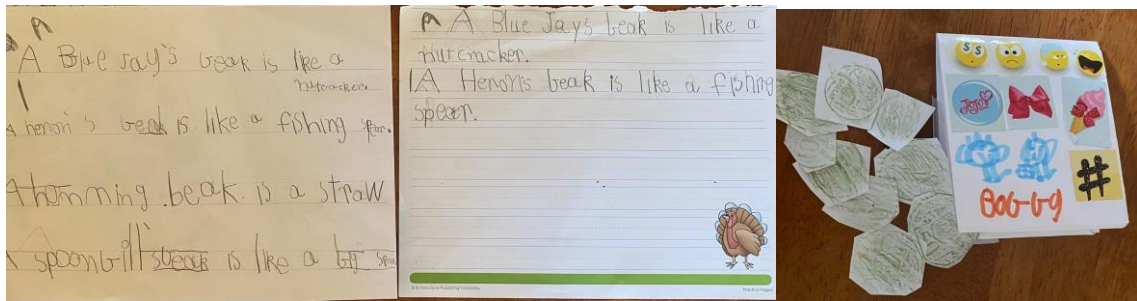 A
A Blue Jay's beak is like a
nutcracker
A heron's beak is like a fishing spear.
A homming beak is a straw
A spoonbill's beak is like a big
A A Blue Jay's beak is like a
nutcracker.
A Heron's beak is like a fishing
spear.
$$
JoJo
#